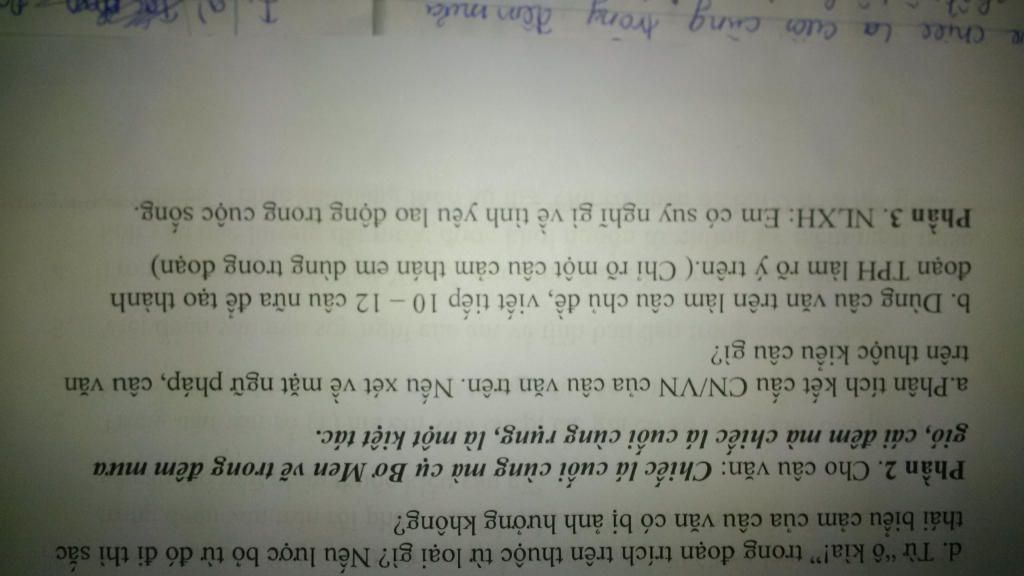 d. Từ “ô kìa!” trong đoạn trích trên thuộc từ loại gì? Nếu lược bỏ từ đó đi thì sắc
thái biểu cảm của câu văn có bị ảnh hưởng không?
Phần 2. Cho câu văn: Chiếc lá cuối cùng mà cụ Bơ Men vẽ trong đêm mưa
gió, cái đêm mà chiếc lá cuối cùng rụng, là một kiệt tác.
a.Phân tích kết cấu CN/VN của câu văn trên. Nếu xét về mặt ngữ pháp, câu văn
trên thuộc kiểu câu gì?
b. Dùng câu văn trên làm câu chủ đề, viết tiếp 10 – 12 câu nữa để tạo thành
đoạn TPH làm rõ ý trên.( Chỉ rõ một câu cảm thán em dùng trong đoạn)
Phần 3. NLXH: Em có suy nghĩ gì về tình yêu lao động trong cuộc sống.
chiếc lá cuối cùng trong đêm mưa